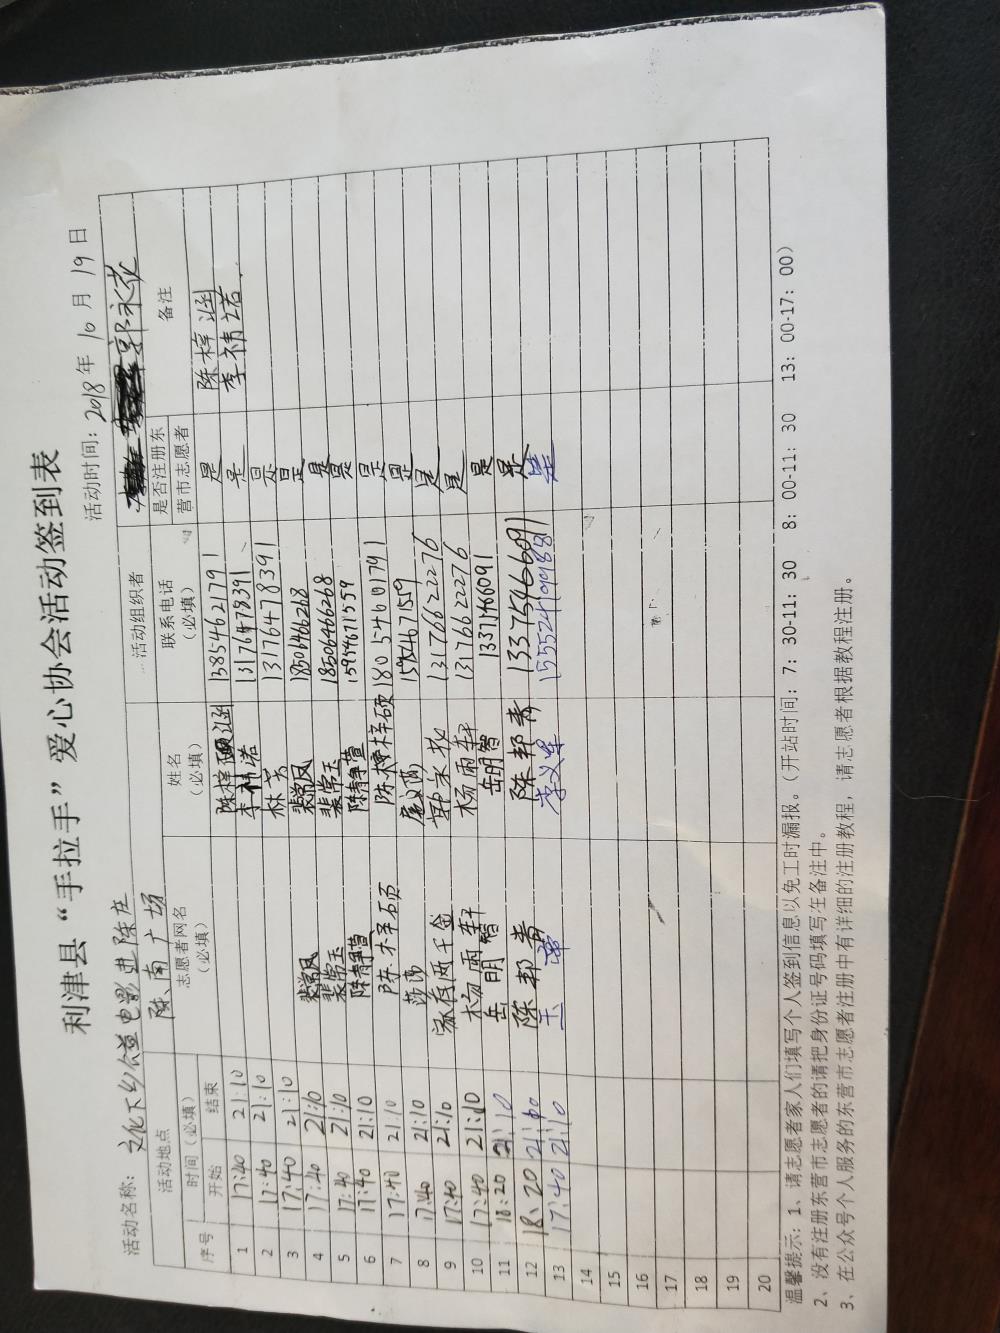 利津县“手拉手”爱心协会活动签到表
活动名称：文化下乡公益电影进陈庄 活动时间：2018年10月19日
活动地点 陈南广场 活动组织者 郭永花
序号 时间（必填） 志愿者网名（必填） 姓名（必填） 联系电话（必填） 是否注册东营市志愿者 备注
开始 结束
1 17:40 21:10 陈梓涵 13854621791 是 陈梓涵
2 17:40 21:10 李禕诺 13176478391 是 李禕诺
3 17:40 21:10 林芳 13176478391 是
4 17:40 21:10 裴常凤 裴常凤 18506466268 是
5 17:40 21:10 裴常玉 裴常玉 18506466268 是
6 17:40 21:10 陈静萱 陈静萱 15954671559 是
7 17:40 21:10 陈梓硕 陈梓硕 18054601791 是
8 17:40 21:10 莎莎 是
9 17:40 21:10 家有两千金 13176622276 是
10 17:40 21:10 杨雨轩 杨雨轩 13176622276 是
11 18:20 21:10 岳明智 岳明智 是
12 18:20 21:10 陈邦秀 陈邦秀 13375466091 是
13 17:40 21:10 李义军 是
14
15
16
17
18
19
20
温馨提示：1、请志愿者家人们填写个人签到信息以免工时漏报。（开站时间：7：30-11：30 8：00-11：30 13：00-17：00）
2、没有注册东营市志愿者的请把身份证号码填写在备注中。
3、在公众号个人服务的东营市志愿者注册中有详细的注册教程，请志愿者根据教程注册。